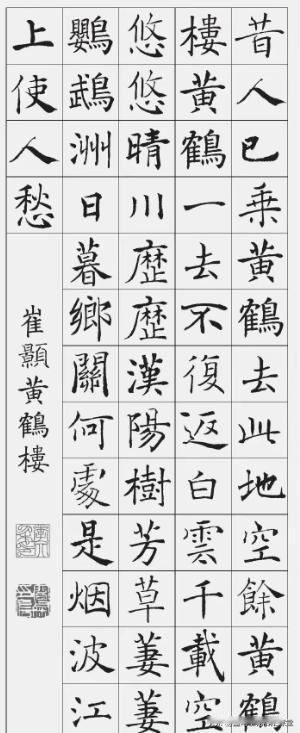 昔人已乘黄鶴去此地空餘黄鶴
樓黄鶴一去不復返白雲千載空
悠悠晴川歷歷漢陽樹芳草萋萋
鸚鵡洲日暮鄉關何處是烟波江
上使人愁
崔顥黄鶴樓